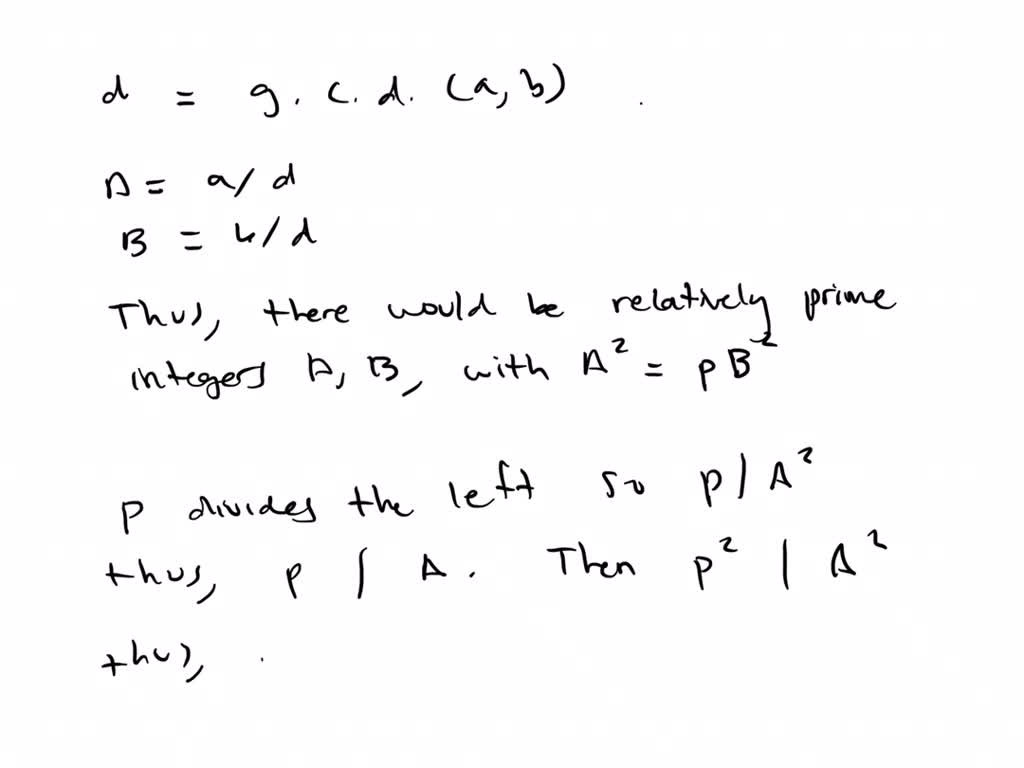 d = g.c.d. (a, b)
A = a/d
B = b/d
Thus, there would be relatively prime
integers A, B, with A² = pB²
p divides the left so p | A²
thus, p | A. Then p² | A²
thus,